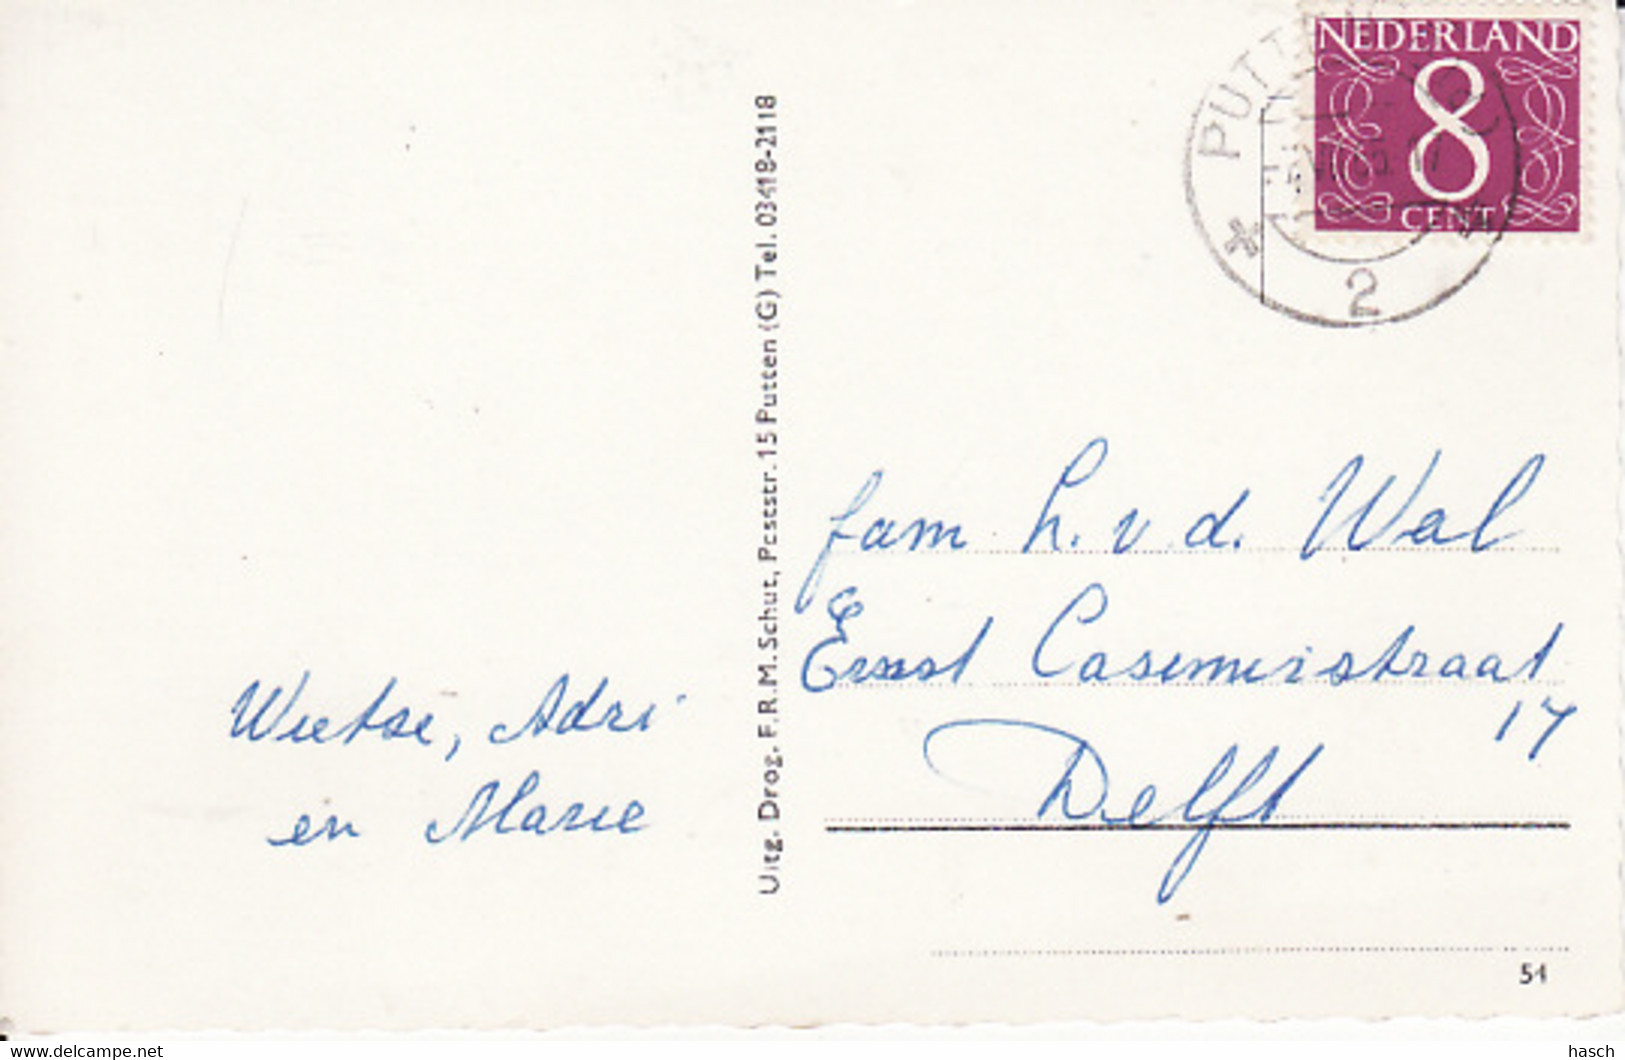 NEDERLAND
8
CENT
PUTT
2
Uitg. Drog. F.R.M. Schut, Pcststr. 15 Putten (G) Tel. 03418-2118
fam h. v. d. Wal
Ernst Casemirstraat
17
Delft
Wietse, Adri
en Marie
51
www.delcampe.net
hasch